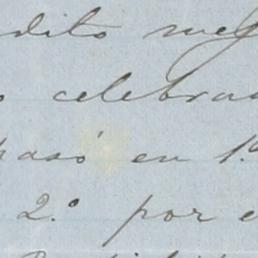 dito
celebra
pasó en 1.º
2.º por e